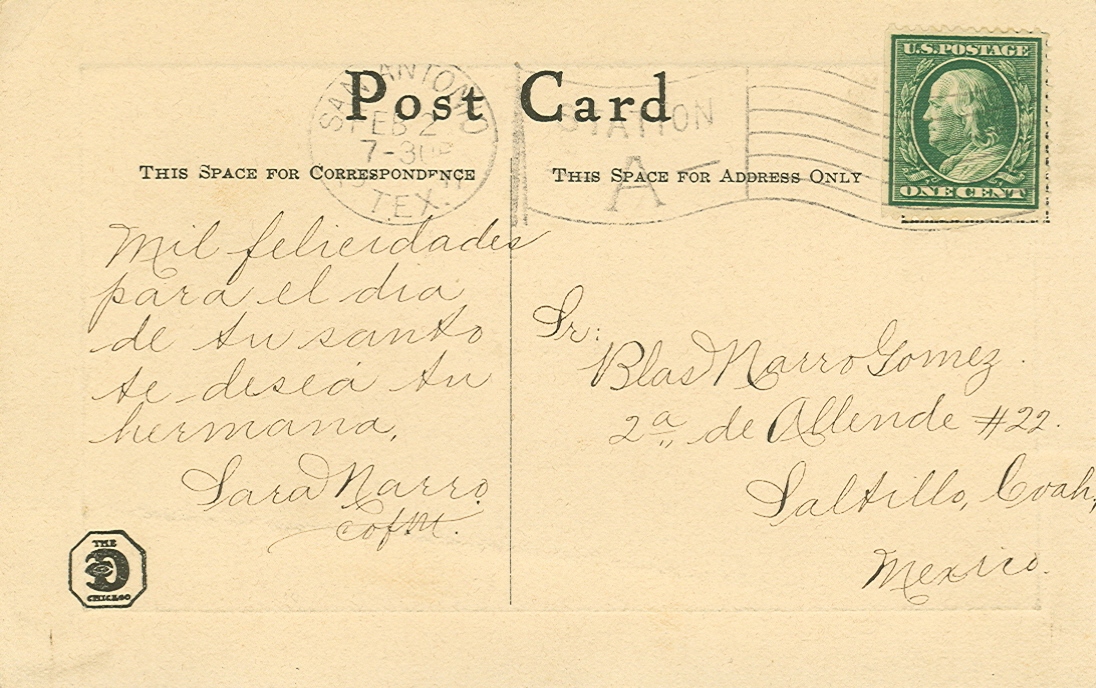 Post Card
SAN ANTONIO
FEB 2
7-30P
TEX.
STATION
A
U.S. POSTAGE
ONE CENT
THIS SPACE FOR CORRESPONDENCE
THIS SPACE FOR ADDRESS ONLY
Mil felicidades
para el dia
de tu santo
te desea tu
hermana,
Sara Narro
Sr:
Blas Narro Gomez.
2a, de Allende #22.
Saltillo, Coah,
Mexico.
THE
CHICAGO